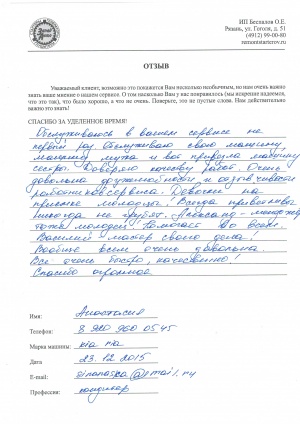 ИП Беспалов О.Е.
Рязань, ул. Гоголя, д. 51
8 (4912) 99-00-80
remontstarterov.ru
ОТЗЫВ
Уважаемый клиент, возможно это покажется Вам несколько необычным, но нам очень важно
знать ваше мнение о нашем сервисе. О том насколько Вам у нас понравилось (мы искренне надеемся,
что это так), что было хорошо, а что не очень. Поверьте, это не пустые слова. Нам действительно
важно это знать!
СПАСИБО ЗА УДЕЛЕННОЕ ВРЕМЯ!
Обслуживаюсь в вашем сервисе не
первый раз. Обслуживаю свою машину,
машину мужа и вот пригнала машину
сестры. Доверяю качеству работ. Очень
довольна дружелюбностью и отзывчивостью
работников сервиса. Девочки на
приёмке молодцы! Всегда приветливы
никогда не грубят. Александр - менеджер
тоже молодец. Помогает во всём.
Василий - мастер своего дела!
Вообще всем очень довольна.
Всё очень быстро, качественно!
Спасибо огромное
Имя: Анастасия
Телефон: 8 920 960 05 45
Марка машины: kia rio
Дата 23.12.2015
E-mail: @mail.ru
Профессия: кондитер